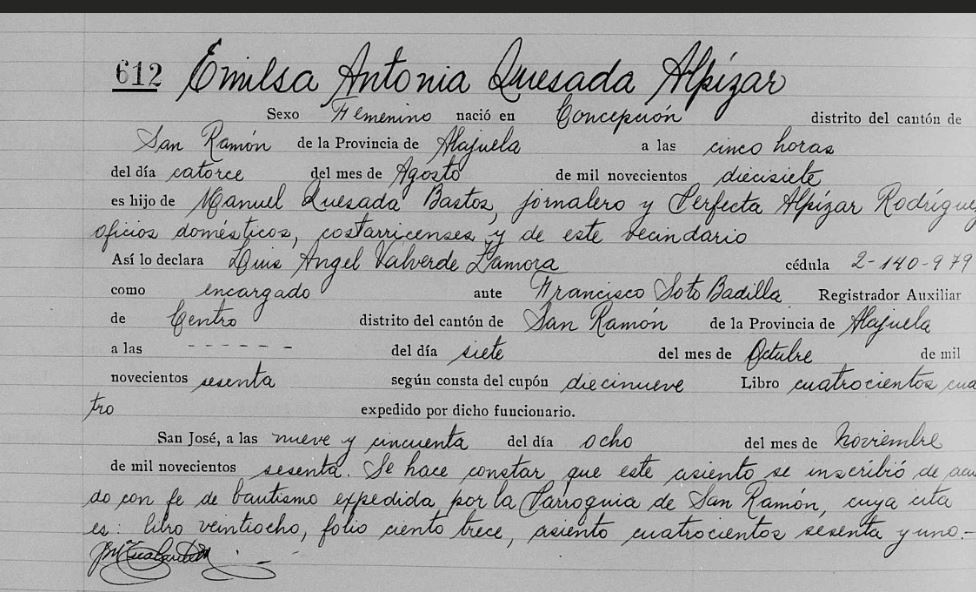 612 Emilsa Antonia Quesada Alpízar
Sexo Femenino nació en Concepción distrito del cantón de
San Ramón de la Provincia de Alajuela a las cinco horas
del día catorce del mes de Agosto de mil novecientos diecisiete
es hijo de Manuel Quesada Bastos, jornalero y Perfecta Alpízar Rodrígue
oficios domésticos, costarricenses y de este vecindario
Así lo declara Luis Angel Valverde Zamora cédula 2-140-979
como encargado ante Francisco Soto Badilla Registrador Auxiliar
de Centro distrito del cantón de San Ramón de la Provincia de Alajuela
a las - - - - - - del día siete del mes de Octubre de mil
novecientos sesenta según consta del cupón diecinueve Libro cuatrocientos cua
tro expedido por dicho funcionario.
San José, a las nueve y cincuenta del día ocho del mes de Noviembre
de mil novecientos sesenta. Se hace constar que este asiento se inscribió de acu
do con fe de bautismo expedida por la Parroquia de San Ramón, cuya cita
es: libro veintiocho, folio ciento trece, asiento cuatrocientos sesenta y uno.-